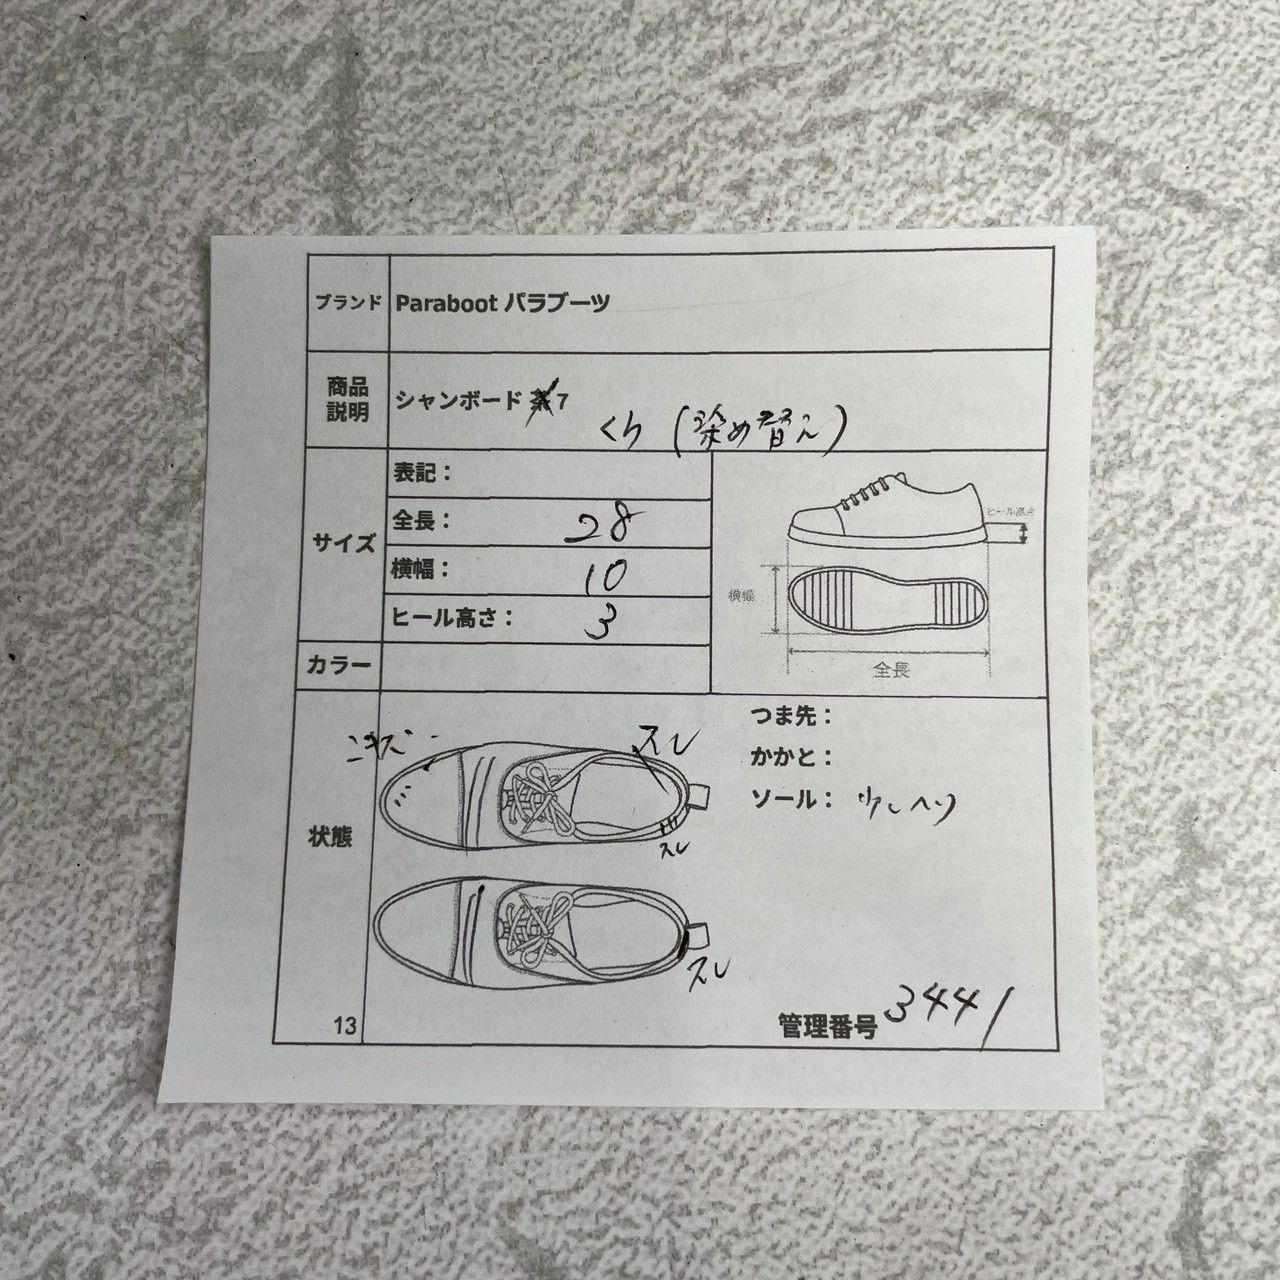 ブランド
Paraboot パラブーツ
商品
説明
シャンボード 茶7
くろ (染め替え)
サイズ
表記：
全長： 28
横幅： 10
ヒール高さ： 3
ヒール高さ
横幅
全長
カラー
状態
つま先：
かかと：
ソール： 少しヘリ
スレ
スレ
スレ
13
管理番号 3441